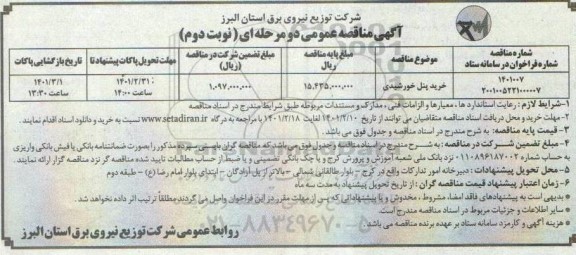 شرکت توزیع نیروی برق استان البرز
آگهی مناقصه عمومی دو مرحله ای (نوبت دوم)
شماره مناقصه
شماره فراخوان در سامانه ستاد
موضوع مناقصه
مبلغ پایه مناقصه
ریال
مبلغ تضمین شرکت در مناقصه
(ریال)
مهلت تحویل پاکات پیشنهاد تا
تاریخ بازگشایی پاکات
1401007
2001005221000007
خرید پنل خورشیدی
15.435.000.000
1.097.000.000
1401/2/31
ساعت 14:00
1401/3/1
ساعت 13:30
1-شرایط لازم : رعایت استاندارد ها ، معیارها و الزامات فنی ، مدارک و مستندات مربوطه طبق شرایط مندرج در اسناد مناقصه
2- مهلت خرید و محل دریافت اسناد مناقصه متقاضیان می توانند از تاریخ 1401/2/10 لغایت 1401/2/18 با مراجعه به درگاه www.setadiran.ir نسبت به خرید و دانلود اسناد اقدام نمایند.
3- قیمت پایه مناقصه: به شرح مندرج در اسناد مناقصه و جدول فوق می باشد.
4- مبلغ تضمین شرکت در مناقصه : به شرح مندرج در اسناد مناقصه و جدول فوق می باشد که مناقصه گران بایستی سپرده مذکور را بصورت ضمانتنامه بانکی یا فیش بانکی واریزی
به حساب شماره 0110896187002 نزد بانک ملی شعبه آموزش و پرورش کرج و یا چک بانکی تضمینی و یا ضبط از حساب مطالبات تایید شده مناقصه گر نزد مناقصه گزار ارائه نمایند.
5- محل تحویل پیشنهادات : دبیرخانه امور تدارکات واقع در کرج - بلوار طالقانی شمالی - بالاتر از پل آزادگان - ابتدای بلوار امام رضا (ع) - طبقه دوم
6- زمان اعتبار پیشنهاد قیمت مناقصه گران : از تاریخ تحویل پیشنهاد به مدت سه ماه
* بدیهی است به پیشنهادهای فاقد امضا، مشروط ، مخدوش و یا پیشنهاداتی که پس از مهلت مقرر در این فراخوان واصل می گردند مطلقاً ترتیب اثر داده نخواهد شد.
* سایر اطلاعات و جزئیات مربوط در اسناد مناقصه مندرج است.
* هزینه آگهی و کارمزد سامانه ستاد بر عهده برنده مناقصه می باشد.
روابط عمومی شرکت توزیع نیروی برق استان البرز
021-88349670-5